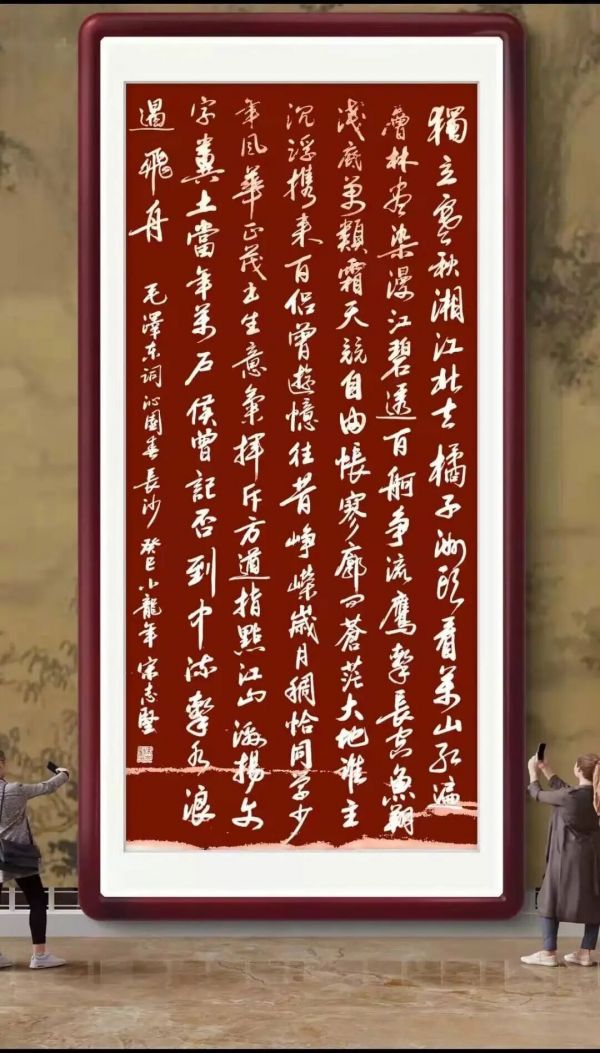 獨立寒秋湘江北去橘子洲頭看萬山紅遍
層林盡染漫江碧透百舸争流鷹擊長空魚翔
淺底萬類霜天競自由悵寥廓問蒼茫大地誰主
沉浮携来百侣曾遊憶往昔峥嶸歲月稠恰同学少
年風華正茂書生意氣揮斥方遒指點江山激揚文
字糞土當年萬户侯曾記否到中流擊水浪
遏飛舟
毛澤东词沁園春長沙 癸巳小龍年宋志堅